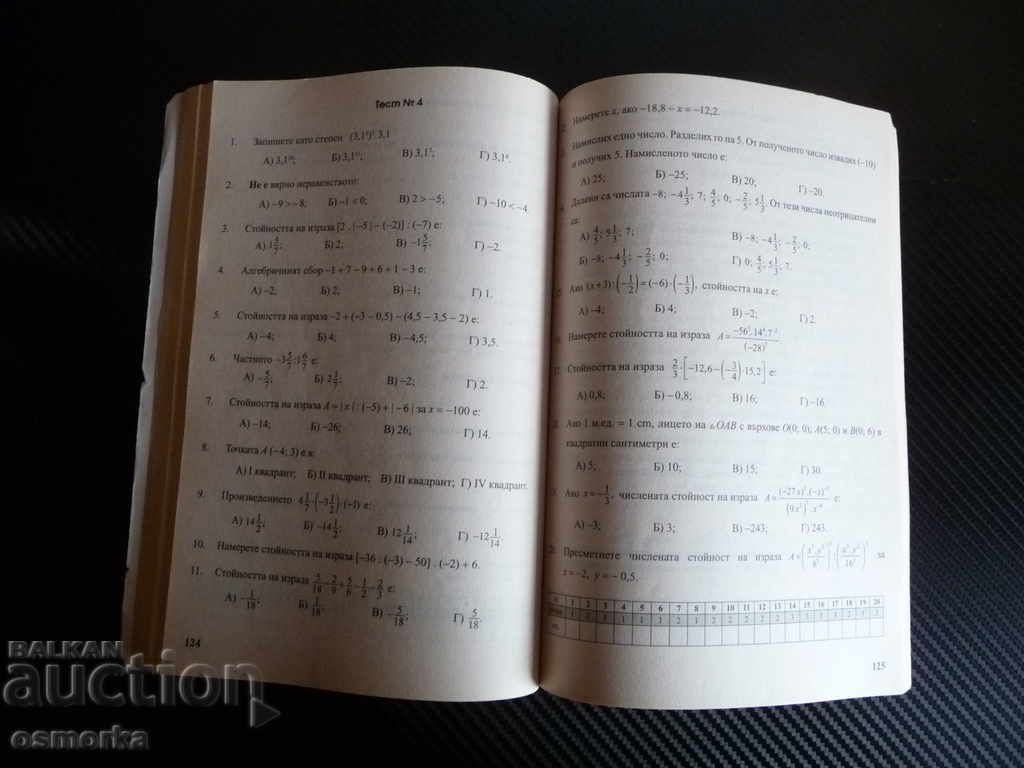 Тест № 4
1. Запишете като степен
А) 3,1
Б) 3,1
В) 3,1
Г) 3,1
2. Не е вярно неравенството:
А) −9 > −8; Б) −1 < 0; В) 2 > −5; Г) −10 < −4.
3. Стойността на израза [2 . | −5 | − (−2)] : (−7) е:
А) 1 5/7; Б) 2; В) −1 5/7; Г) −2.
4. Алгебричният сбор −1 + 7 − 9 + 6 + 1 − 3 е:
А) −2; Б) 2; В) −1; Г) 1.
5. Стойността на израза −2 + (−3 − 0,5) − (4,5 − 3,5 − 2) е:
А) −4; Б) 4; В) −4,5; Г) 3,5.
6. Частното −3 5/7 : 1 6/7 е:
А) −5/7; Б) 2 1/7; В) −2; Г) 2.
7. Стойността на израза A = | x | : (−5) + | −6 | за x = −100 е:
А) −14; Б) −26; В) 26; Г) 14.
8. Точката A (−4; 3) е в:
А) I квадрант; Б) II квадрант; В) III квадрант; Г) IV квадрант.
9. Произведението 4 1/7 · (−3 1/2) · (−1) е:
А) 14 1/2; Б) −14 1/2; В) 12 1/14; Г) −12 1/14.
10. Намерете стойността на израза [−36 : (−3) − 50] : (−2) + 6.
11. Стойността на израза 5/18 − 2/9 + 5/6 − 1/2 − 2/3 е:
А) −1/18; Б) 1/18; В) −5/18; Г) 5/18.
124
Намерете x, ако −18,8 − x = −12,2.
Намислих едно число. Разделих го на 5. От полученото число извадих (−10)
и получих 5. Намисленото число е:
А) 25; Б) −25; В) 20; Г) −20.
Дадени са числата −8; −4 1/3; 7; 4/5; 0; −2/5; 5 1/3. От тези числа неотрицателни
са:
А) 4/5; 5 1/3; 7; В) −8; −4 1/3; −2/5; 0;
Б) −8; −4 1/3; −2/5; 0; Г) 0; 4/5; 5 1/3; 7.
Ако (x + 3) : (−1/2) = (−6) · (−1/3), стойността на x е:
А) −4; Б) 4; В) −2; Г) 2.
Намерете стойността на израза A =
Стойността на израза 2/3 · [−12,6 − (−3/4) · 15,2] е:
А) 0,8; Б) −0,8; В) 16; Г) −16.
Ако 1 м.ед. = 1 cm, лицето на △ OAB с върхове O(0; 0); A(5; 0) и B(0; 6) в
квадратни сантиметри е:
А) 5; Б) 10; В) 15; Г) 30.
Ако x = −1/3, числената стойност на израза A = е:
А) −3; Б) 3; В) −243; Г) 243.
Пресметнете числената стойност на израза A = за
x = −2, y = −0,5.
1 2 3 4 5 6 7 8 9 10 11 12 13 14 15 16 17 18 19 20
125
BALKAN
auction
osmorka